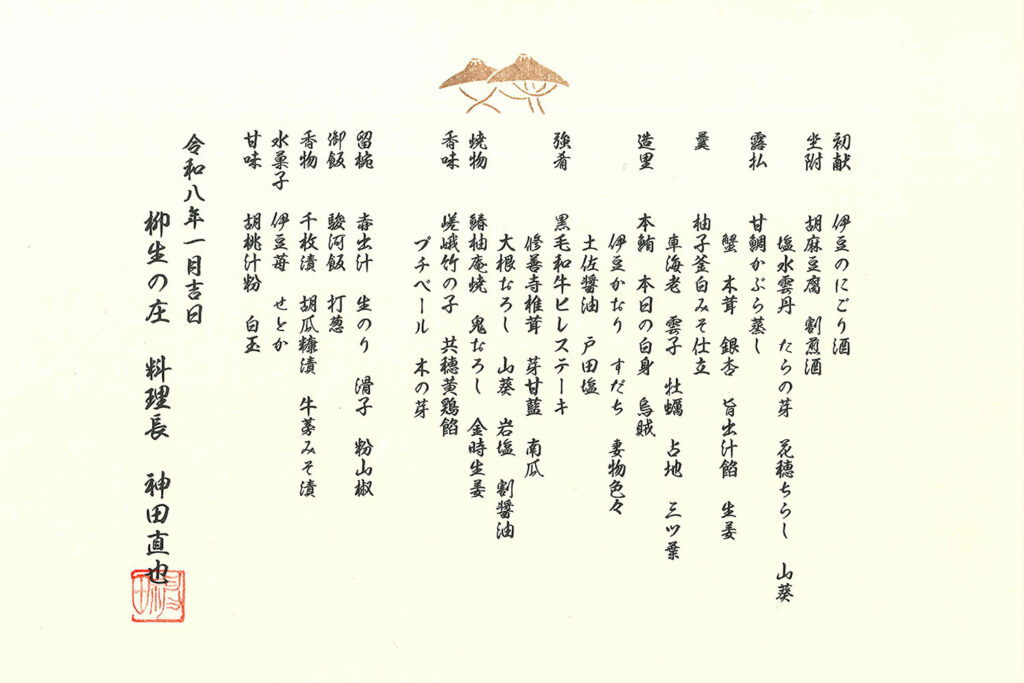 初献　伊豆のにごり酒
坐附　胡麻豆腐　割煎酒
塩水雲丹　たらの芽　花穂ちらし　山葵
露払　甘鯛かぶら蒸し
蟹　木茸　銀杏　旨出汁餡　生姜
羹　柚子釜白みそ仕立
車海老　雲子　牡蠣　占地　三ツ葉
造里　本鮪　本日の白身　烏賊
伊豆かなり　すだち　妻物色々
土佐醤油　戸田塩
強肴　黒毛和牛ヒレステーキ
修善寺椎茸　芽甘藍　南瓜
大根おろし　山葵　岩塩　割醤油
焼物　鰆柚庵焼　鬼おろし　金時生姜
香味　嵯峨竹の子　共穂黄鶏餡
プチベール　木の芽
留椀　赤出汁　生のり　滑子　粉山椒
御飯　駿河飯　打葱
香物　千枚漬　胡瓜糠漬　牛蒡みそ漬
水菓子　伊豆苺　せとか
甘味　胡桃汁粉　白玉
令和八年一月吉日
柳生の庄　料理長　神田直也